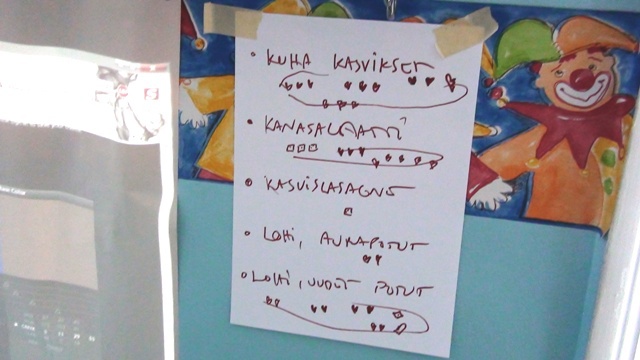 • KUHA KASVIKSET
• KANASALAATTI
• KASVISLASAGNE
• LOHI, AURAPOTUT
• LOHI, UUDET POTUT